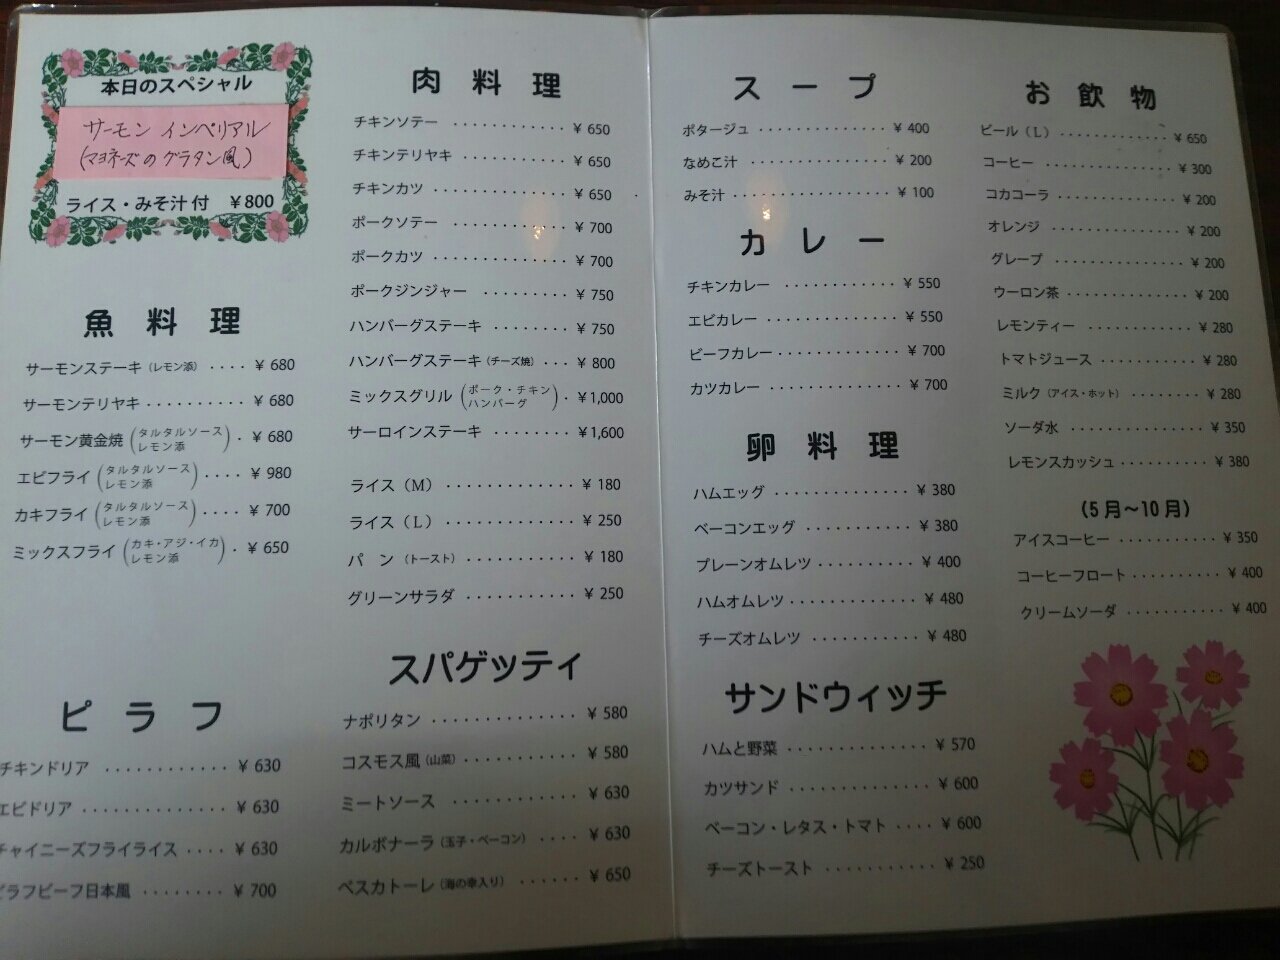 本日のスペシャル
サーモン インペリアル
(マヨネーズのグラタン風)
ライス・みそ汁付 ¥800
魚料理
サーモンステーキ(レモン添) ···· ¥680
サーモンテリヤキ ·········· ¥680
サーモン黄金焼(タルタルソース レモン添)· ¥680
エビフライ(タルタルソース レモン添)···· ¥980
カキフライ(タルタルソース レモン添)···· ¥700
ミックスフライ(カキ・アジ・イカ レモン添)· ¥650
ピラフ
チキンドリア ············ ¥630
エビドリア ············· ¥630
チャイニーズフライライス ····· ¥630
ピラフビーフ日本風 ········ ¥700
肉料理
チキンソテー ············ ¥650
チキンテリヤキ ··········· ¥650
チキンカツ ············· ¥650
ポークソテー ············ ¥700
ポークカツ ············· ¥700
ポークジンジャー ········· ¥750
ハンバーグステーキ ········ ¥750
ハンバーグステーキ(チーズ焼) ··· ¥800
ミックスグリル(ポーク・チキン ハンバーグ)· ¥1,000
サーロインステーキ ········ ¥1,600
ライス(M) ············ ¥180
ライス(L) ············ ¥250
パン(トースト) ··········· ¥180
グリーンサラダ ··········· ¥250
スパゲッティ
ナポリタン ·············· ¥580
コスモス風(山菜) ·········· ¥580
ミートソース ············ ¥630
カルボナーラ(玉子・ベーコン) ···· ¥630
ペスカトーレ(海の幸入り) ······ ¥650
スープ
ポタージュ ············· ¥400
なめこ汁 ·············· ¥200
みそ汁 ················ ¥100
カレー
チキンカレー ············ ¥550
エビカレー ············· ¥550
ビーフカレー ············ ¥700
カツカレー ············· ¥700
卵料理
ハムエッグ ·············· ¥380
ベーコンエッグ ··········· ¥380
プレーンオムレツ ·········· ¥400
ハムオムレツ ············· ¥480
チーズオムレツ ··········· ¥480
サンドウィッチ
ハムと野菜 ·············· ¥570
カツサンド ·············· ¥600
ベーコン・レタス・トマト ···· ¥600
チーズトースト ··········· ¥250
お飲物
ビール(L) ············· ¥650
コーヒー ·············· ¥300
コカコーラ ············· ¥200
オレンジ ·············· ¥200
グレープ ·············· ¥200
ウーロン茶 ············· ¥200
レモンティー ············ ¥280
トマトジュース ··········· ¥280
ミルク(アイス・ホット) ······· ¥280
ソーダ水 ·············· ¥350
レモンスカッシュ ·········· ¥380
(5月～10月)
アイスコーヒー ··········· ¥350
コーヒーフロート ·········· ¥400
クリームソーダ ··········· ¥400